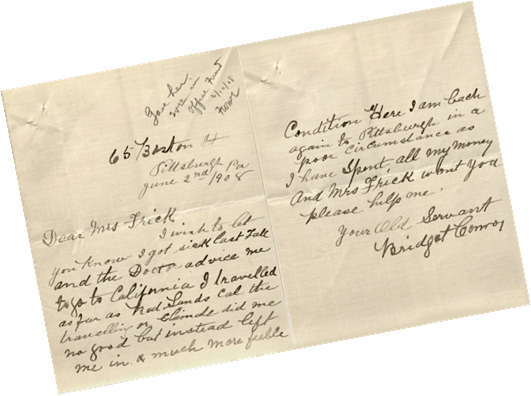 Gave her
Office
65 Boston St
Pittsburgh Pa
June 2nd 1908
Dear Mrs Frick.
I wish to let
you Know I got sick last Fall
and the Doctor advice me
to go to California I travelled
as far as Red Lands Cal the
travelling or Climde did me
no good but instead left
me in a much more feeble
Condition Here I am back
again to Pittsburgh in a
poor circumstance as
I have Spent all my money
And Mrs Frick wont you
please help me.
Your Old Servant
Bridget Conroy